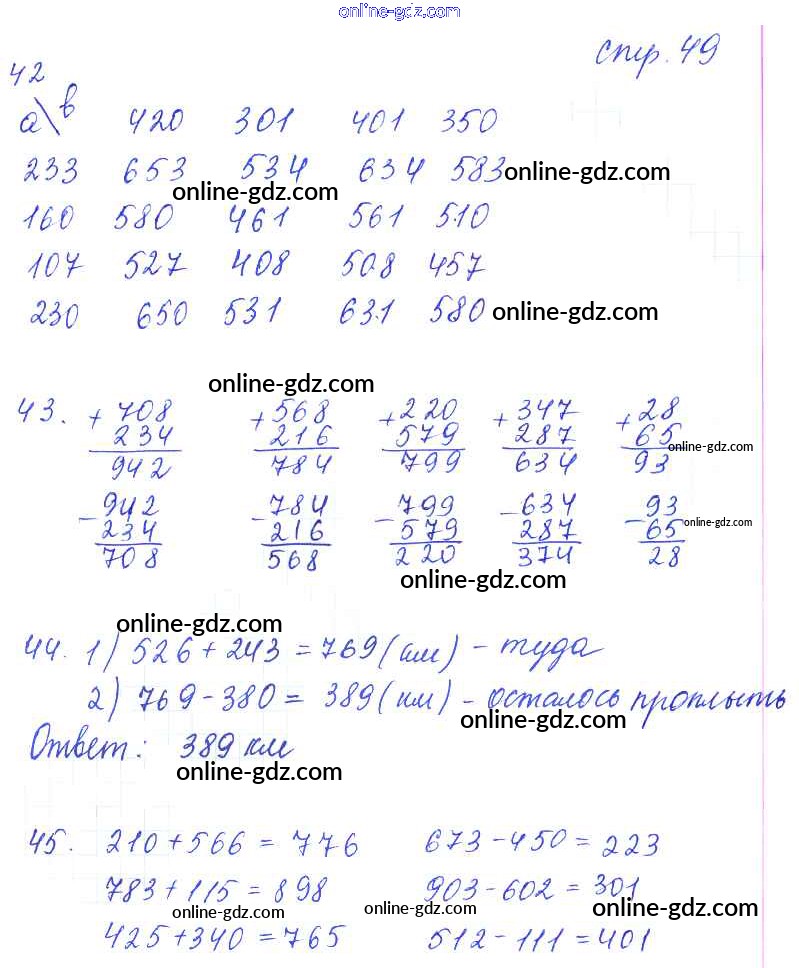 online-gdz.com
стр. 49
42
a\в 420 301 401 350
233 653 534 634 583 online-gdz.com
online-gdz.com
160 580 461 561 510
107 527 408 508 457
230 650 531 631 580 online-gdz.com
online-gdz.com
43. + 708 + 568 + 220 + 347 + 28
234 216 579 287 65 online-gdz.com
942 784 799 634 93
- 942 - 784 - 799 - 634 - 93
234 216 579 287 65 online-gdz.com
708 568 220 374 28
online-gdz.com
online-gdz.com
44. 1) 526 + 243 = 769 (км) - туда
2) 769 - 380 = 389 (км) - осталось проплыть
online-gdz.com
Ответ: 389 км
online-gdz.com
45. 210 + 566 = 776 673 - 450 = 223
783 + 115 = 898 903 - 602 = 301
online-gdz.com online-gdz.com online-gdz.com
425 + 340 = 765 512 - 111 = 401